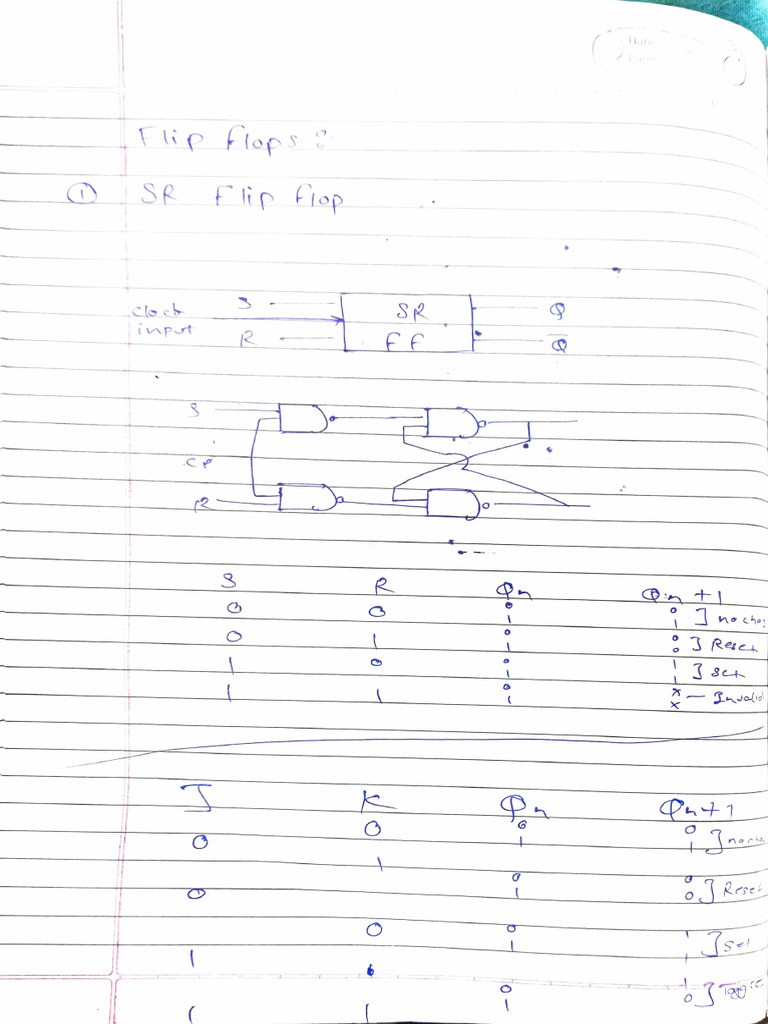 Date
Page
Flip flops:
① SR Flip flop
S SR Q
clock input
R FF Q̅
S
CP
R
S R Qn Qn+1
0 0 0 0 ] no cha
1 1
0 1 0 0 ] Reset
1 0
1 0 0 1 ] set
1 1
1 1 0 x — Invalid
1 x
J K Qn Qn+1
0 0 0 0 ] no cha
1 1
0 1 0 0 ] Reset
1 0
1 0 0 1 ] Set
1 1
1 1 0 1 ] Toggle
1 0